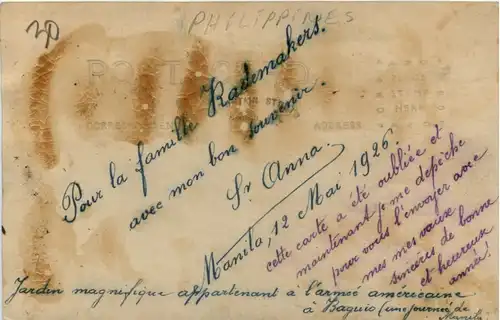 20
PHILIPPINES
POST CARD
CORRESPONDENCE
ADDRESS
Pour la famille Rademakers.
avec mon bon souvenir.
Sr. Anna.
Manila, 12 Mai 1926
cette carte a été oubliée et
maintenant je me depêche
pour vous l'envoyer avec
mes mes vœux
sincères de bonne
et heureuse
année!
Jardin magnifique appartenant à l'armée américaine
à Baguio (une journée de
Manila